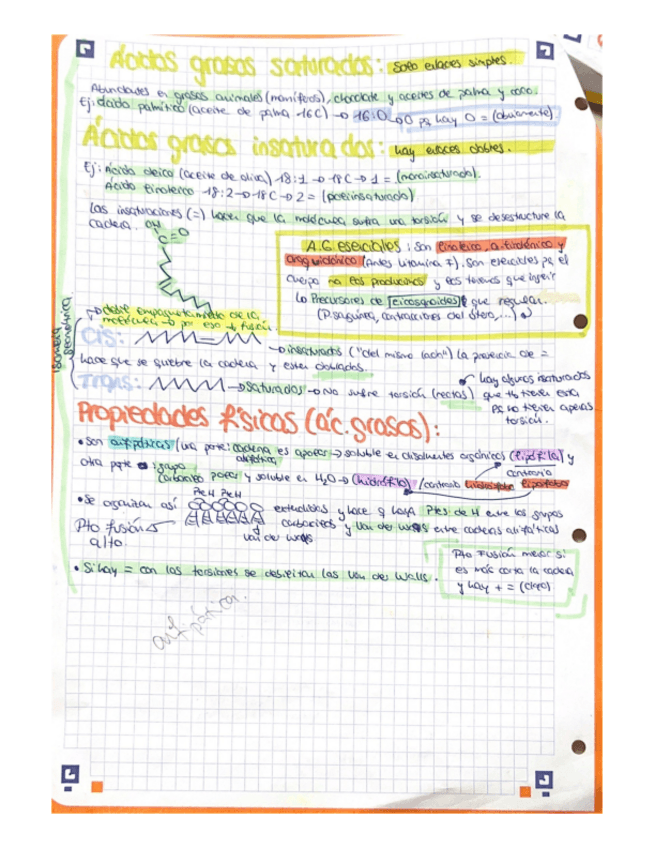 Ácidos grasos saturados: solo enlaces simples.
Abundantes en grasas animales (mamíferos), chocolate y aceites de palma y coco.
Ej: ácido palmítico (aceite de palma 16C) → 16:0 → 0 pq hay 0 = (obviamente)
Ácidos grasos insaturados: hay enlaces dobles.
Ej: Ácido oleico (aceite de oliva) 18:1 → 18C → 1 = (monoinsaturado).
Ácido linoleico 18:2 → 18C → 2 = (poliinsaturado)
Las insaturaciones (=) hacen que la molécula sufra una torsión y se desestructure la
cadena.
OH
C=O
A.G esenciales: son linoleico, α-linolénico y
araquidónico (Antes vitamina F). Son esenciales pq el
cuerpo no los producimos y los tenemos que ingerir
↳ Precursores de eicosanoides que regulan.
(P. sanguínea, contracciones del útero,...)
→ debil empaquetamiento de la
molécula → por eso ↓ fusión.
Isomería geométrica
CIS:
→ insaturados ("del mismo lado") la presencia de =
hace que se quiebre la cadena y estén doblados.
Trans:
→ saturados → No sufre torsión (rectas)
hay algunos insaturados
que tb tienen esta
pq no tienen apenas
torsión.
Propiedades físicas (ác. grasos):
• Son anfipáticas (una parte: cadena alifática es apolar → soluble en disolventes orgánicos (lipófila) y
otra parte: grupo carboxílico polar y soluble en H₂O → (hidrófila) / contrario hidrófobo lipófobo
contrario
Pte H Pte H
• Se organizan así
extendidas y hace q haya Ptes de H entre los grupos
carboxilos y Van der Walls entre cadenas alifáticas
Van der Walls
Pto fusión
alto.
Pto Fusión menor si
es más corta la cadena
y hay + = (claro)
• Si hay = con las torsiones se despistan las Van der Walls.
anfipática.